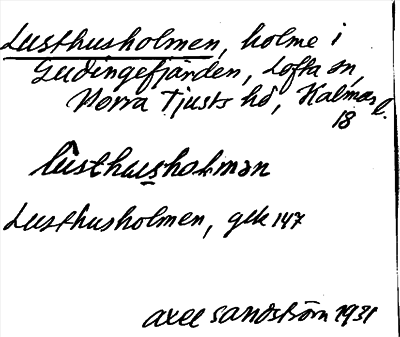 Lusthusholmen, holme i
Gudingefjärden, Lofta sn,
Norra Tjusts hd, Kalmar l.
18
lùsthusholmən
Lusthusholmen, gek 147
Axel Sandström 1931